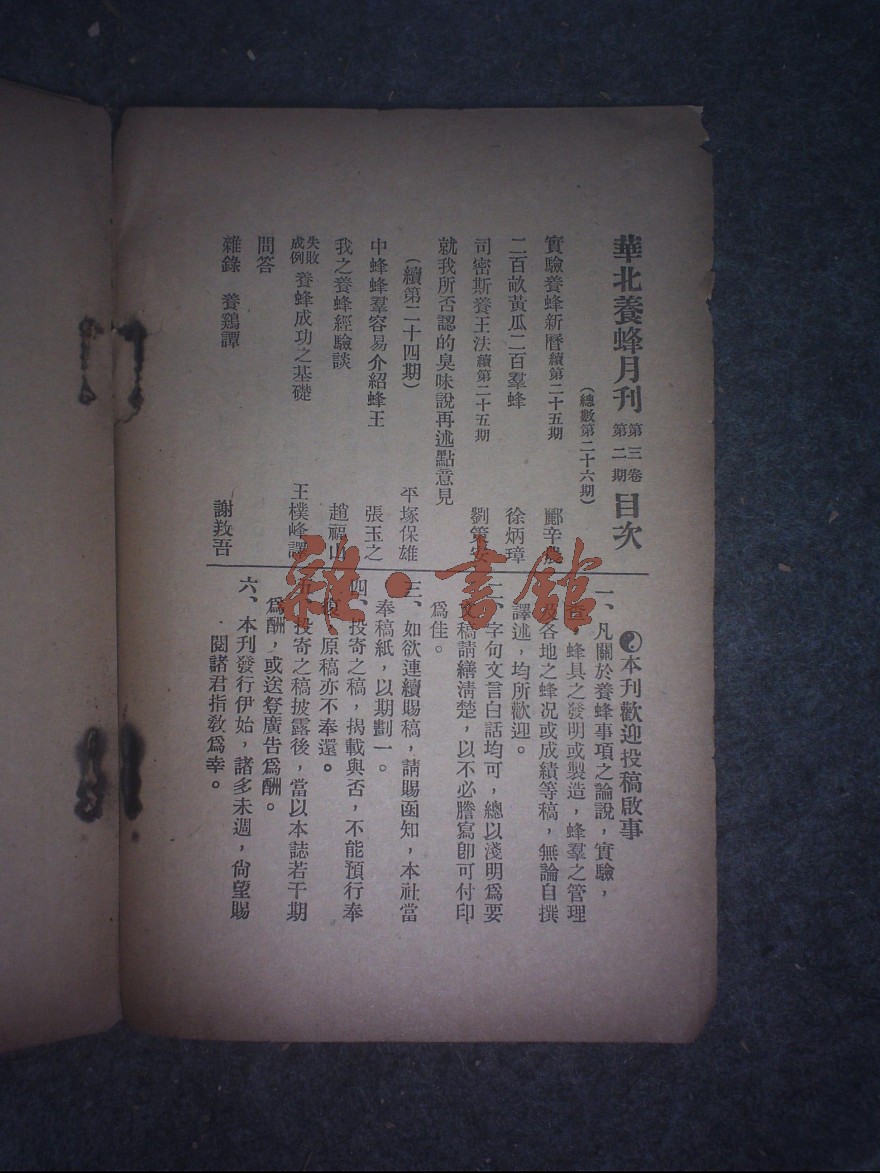 華北養蜂月刊 第三卷第二期 目次
(總數第二十六期)
實驗養蜂新曆續第二十五期 酈辛農
二百畝黃瓜二百羣蜂 徐炳璋
司密斯養王法續第二十五期 劉
就我所否認的臭味說再述點意見
(續第二十四期) 平塚保雄
中蜂蜂羣容易介紹蜂王 張玉之
我之養蜂經驗談 趙福山
失敗成例 養蜂成功之基礎 王樸峰譯
問答
雜錄 養鷄譚 謝敎吾
本刊歡迎投稿啟事
一、凡關於養蜂事項之論說,實驗,
查,蜂具之發明或製造,蜂羣之管理
及各地之蜂况或成績等稿,無論自撰
譯述,均所歡迎。
二、字句文言白話均可,總以淺明爲要
文稿請繕淸楚,以不必謄寫卽可付印
爲佳。
三、如欲連續賜稿,請賜函知,本社當
奉稿紙,以期劃一。
四、投寄之稿,揭載與否,不能預行奉
復,原稿亦不奉還。
五、投寄之稿披露後,當以本誌若干期
爲酬,或送登廣告爲酬。
六、本刊發行伊始,諸多未週,尙望賜
閱諸君指敎爲幸。
雜·書館